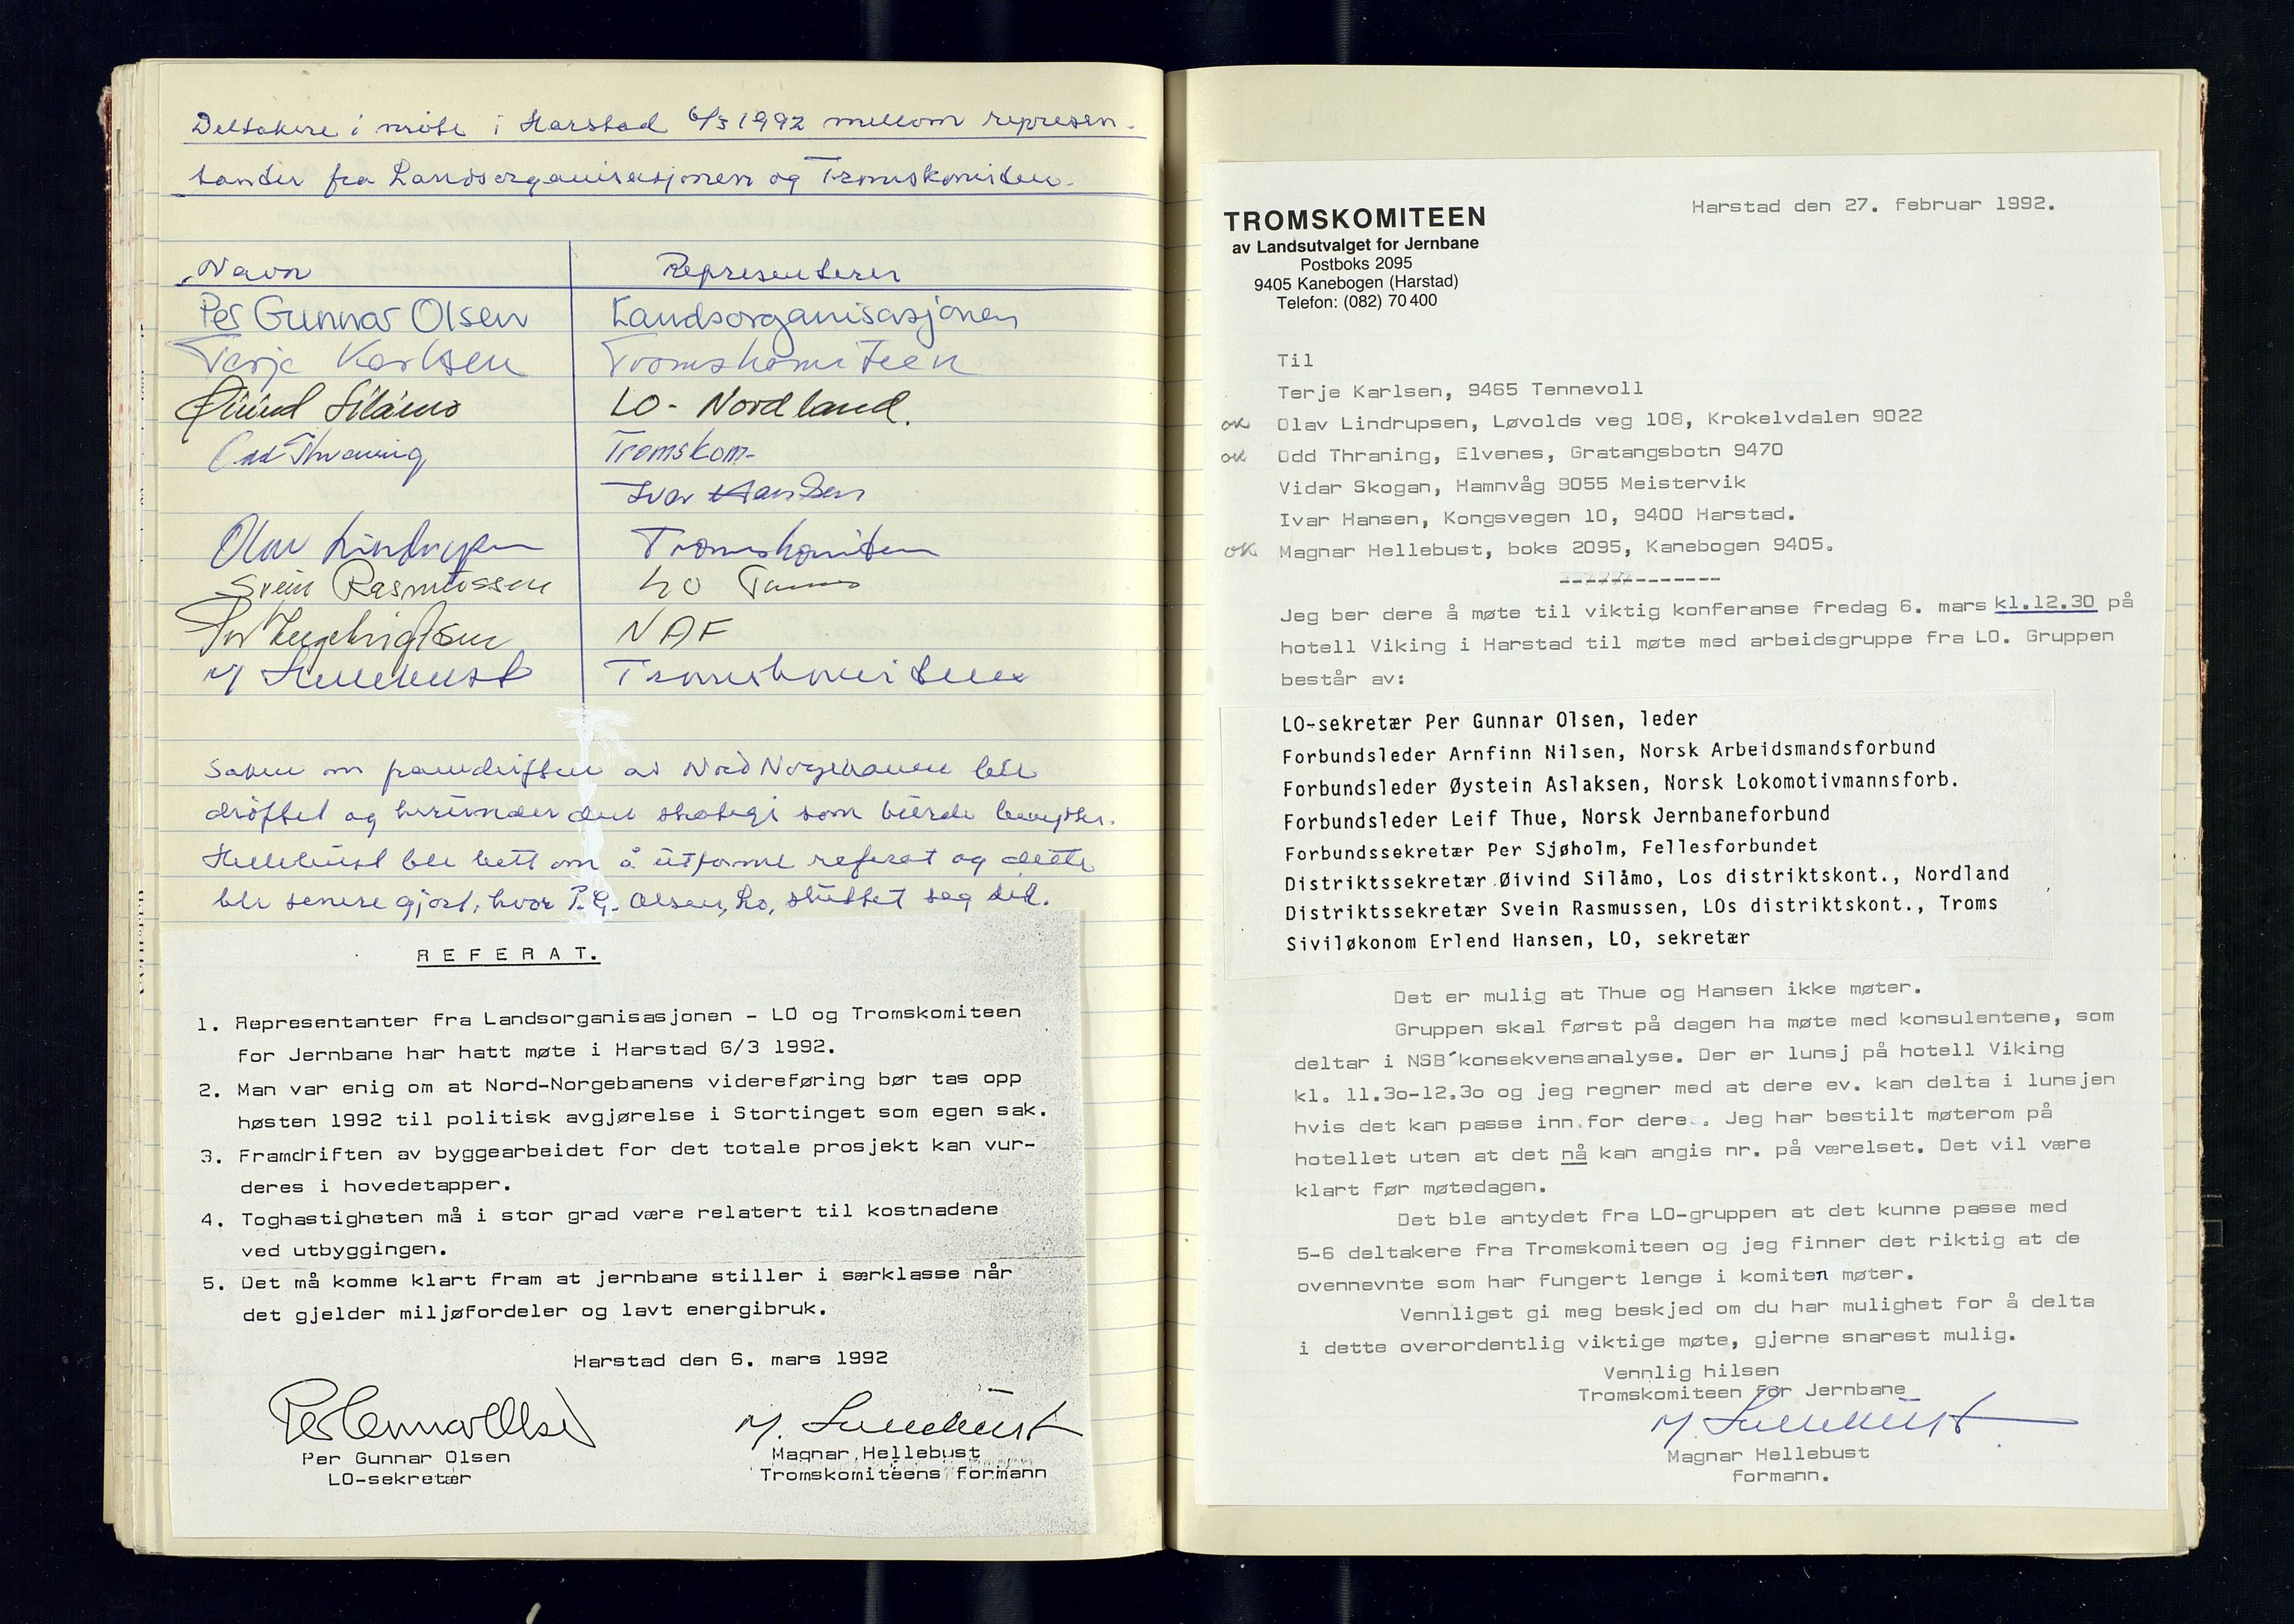 Deltakere i møte i Harstad 6/3 1992 mellom represen-
tanter fra Landsorganisasjonen og Tromskomiteen.
Navn Representerer
Per Gunnar Olsen Landsorganisasjonen
Terje Karlsen Tromskomiteen
Øivind Silåmo LO - Nordland.
Odd Thraning Tromskom-
Ivar Hansen
Olav Lindrupsen Tromskomiteen
Svein Rasmussen LO Troms
NAF
M Hellebust Tromskomiteen
Saken om framdriften av Nord Norgebanen ble
drøftet og herunder den strategi som burde benyttes.
Hellebust ble bett om å utforme referat og dette
ble senere gjort, hvor P.G. Olsen, Lo, sluttet seg til.
REFERAT.
1. Representanter fra Landsorganisasjonen - LO og Tromskomiteen
for Jernbane har hatt møte i Harstad 6/3 1992.
2. Man var enig om at Nord-Norgebanens videreføring bør tas opp
høsten 1992 til politisk avgjørelse i Stortinget som egen sak.
3. Framdriften av byggearbeidet for det totale prosjekt kan vur-
deres i hovedetapper.
4. Toghastigheten må i stor grad være relatert til kostnadene
ved utbyggingen.
5. Det må komme klart fram at jernbane stiller i særklasse når
det gjelder miljøfordeler og lavt energibruk.
Harstad den 6. mars 1992
Per Gunnar Olsen M. Hellebust
Per Gunnar Olsen Magnar Hellebust
LO-sekretær Tromskomiteens formann
Harstad den 27. februar 1992.
TROMSKOMITEEN
av Landsutvalget for Jernbane
Postboks 2095
9405 Kanebogen (Harstad)
Telefon: (082) 70 400
Til
Terje Karlsen, 9465 Tennevoll
ok Olav Lindrupsen, Løvolds veg 108, Krokelvdalen 9022
ok Odd Thraning, Elvenes, Gratangsbotn 9470
Vidar Skogan, Hamnvåg 9055 Meistervik
Ivar Hansen, Kongsvegen 10, 9400 Harstad.
ok Magnar Hellebust, boks 2095, Kanebogen 9405.
-------------
Jeg ber dere å møte til viktig konferanse fredag 6. mars kl.12.30 på
hotell Viking i Harstad til møte med arbeidsgruppe fra LO. Gruppen
består av:
LO-sekretær Per Gunnar Olsen, leder
Forbundsleder Arnfinn Nilsen, Norsk Arbeidsmandsforbund
Forbundsleder Øystein Aslaksen, Norsk Lokomotivmannsforb.
Forbundsleder Leif Thue, Norsk Jernbaneforbund
Forbundssekretær Per Sjøholm, Fellesforbundet
Distriktssekretær Øivind Silåmo, Los distriktskont., Nordland
Distriktssekretær Svein Rasmussen, LOs distriktskont., Troms
Siviløkonom Erlend Hansen, LO, sekretær
Det er mulig at Thue og Hansen ikke møter.
Gruppen skal først på dagen ha møte med konsulentene, som
deltar i NSB´konsekvensanalyse. Der er lunsj på hotell Viking
kl. 11.30-12.30 og jeg regner med at dere ev. kan delta i lunsjen
hvis det kan passe inn for dere. Jeg har bestilt møterom på
hotellet uten at det nå kan angis nr. på værelset. Det vil være
klart før møtedagen.
Det ble antydet fra LO-gruppen at det kunne passe med
5-6 deltakere fra Tromskomiteen og jeg finner det riktig at de
ovennevnte som har fungert lenge i komiten møter.
Vennligst gi meg beskjed om du har mulighet for å delta
i dette overordentlig viktige møte, gjerne snarest mulig.
Vennlig hilsen
Tromskomiteen for Jernbane
M. Hellebust
Magnar Hellebust
formann.